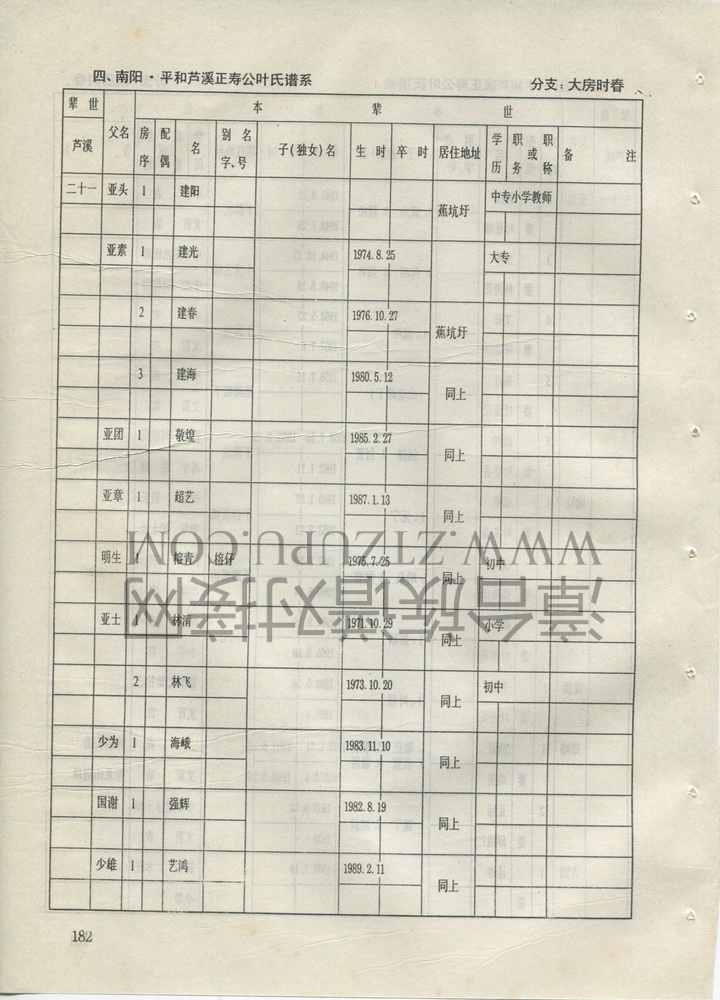 四、南阳·平和芦溪正寿公叶氏谱系 分支：大房时春
辈世 本辈世
芦溪 父名 房序 配偶 名 别名字、号 子(独女)名 生时 卒时 居住地址 学历 职务或职称 备注
二十一 亚头 1 建阳 蕉坑圩 中专 小学教师
亚素 1 建光 1974.8.25 大专
2 建春 1976.10.27 蕉坑圩
3 建海 1980.5.12 同上
亚团 1 敬煌 1985.2.27 同上
亚章 1 超艺 1987.1.13 同上
WWW.ZTZUPU.COM
明生 1 榕青 榕仔 1975.7.25 同上 初中
漳台族谱对接网
亚士 1 林渭 1971.10.29 同上 小学
2 林飞 1973.10.20 同上 初中
少为 1 海峨 1983.11.10 同上
国谢 1 强辉 1982.8.19 同上
少雄 1 艺鸿 1989.2.11 同上
182